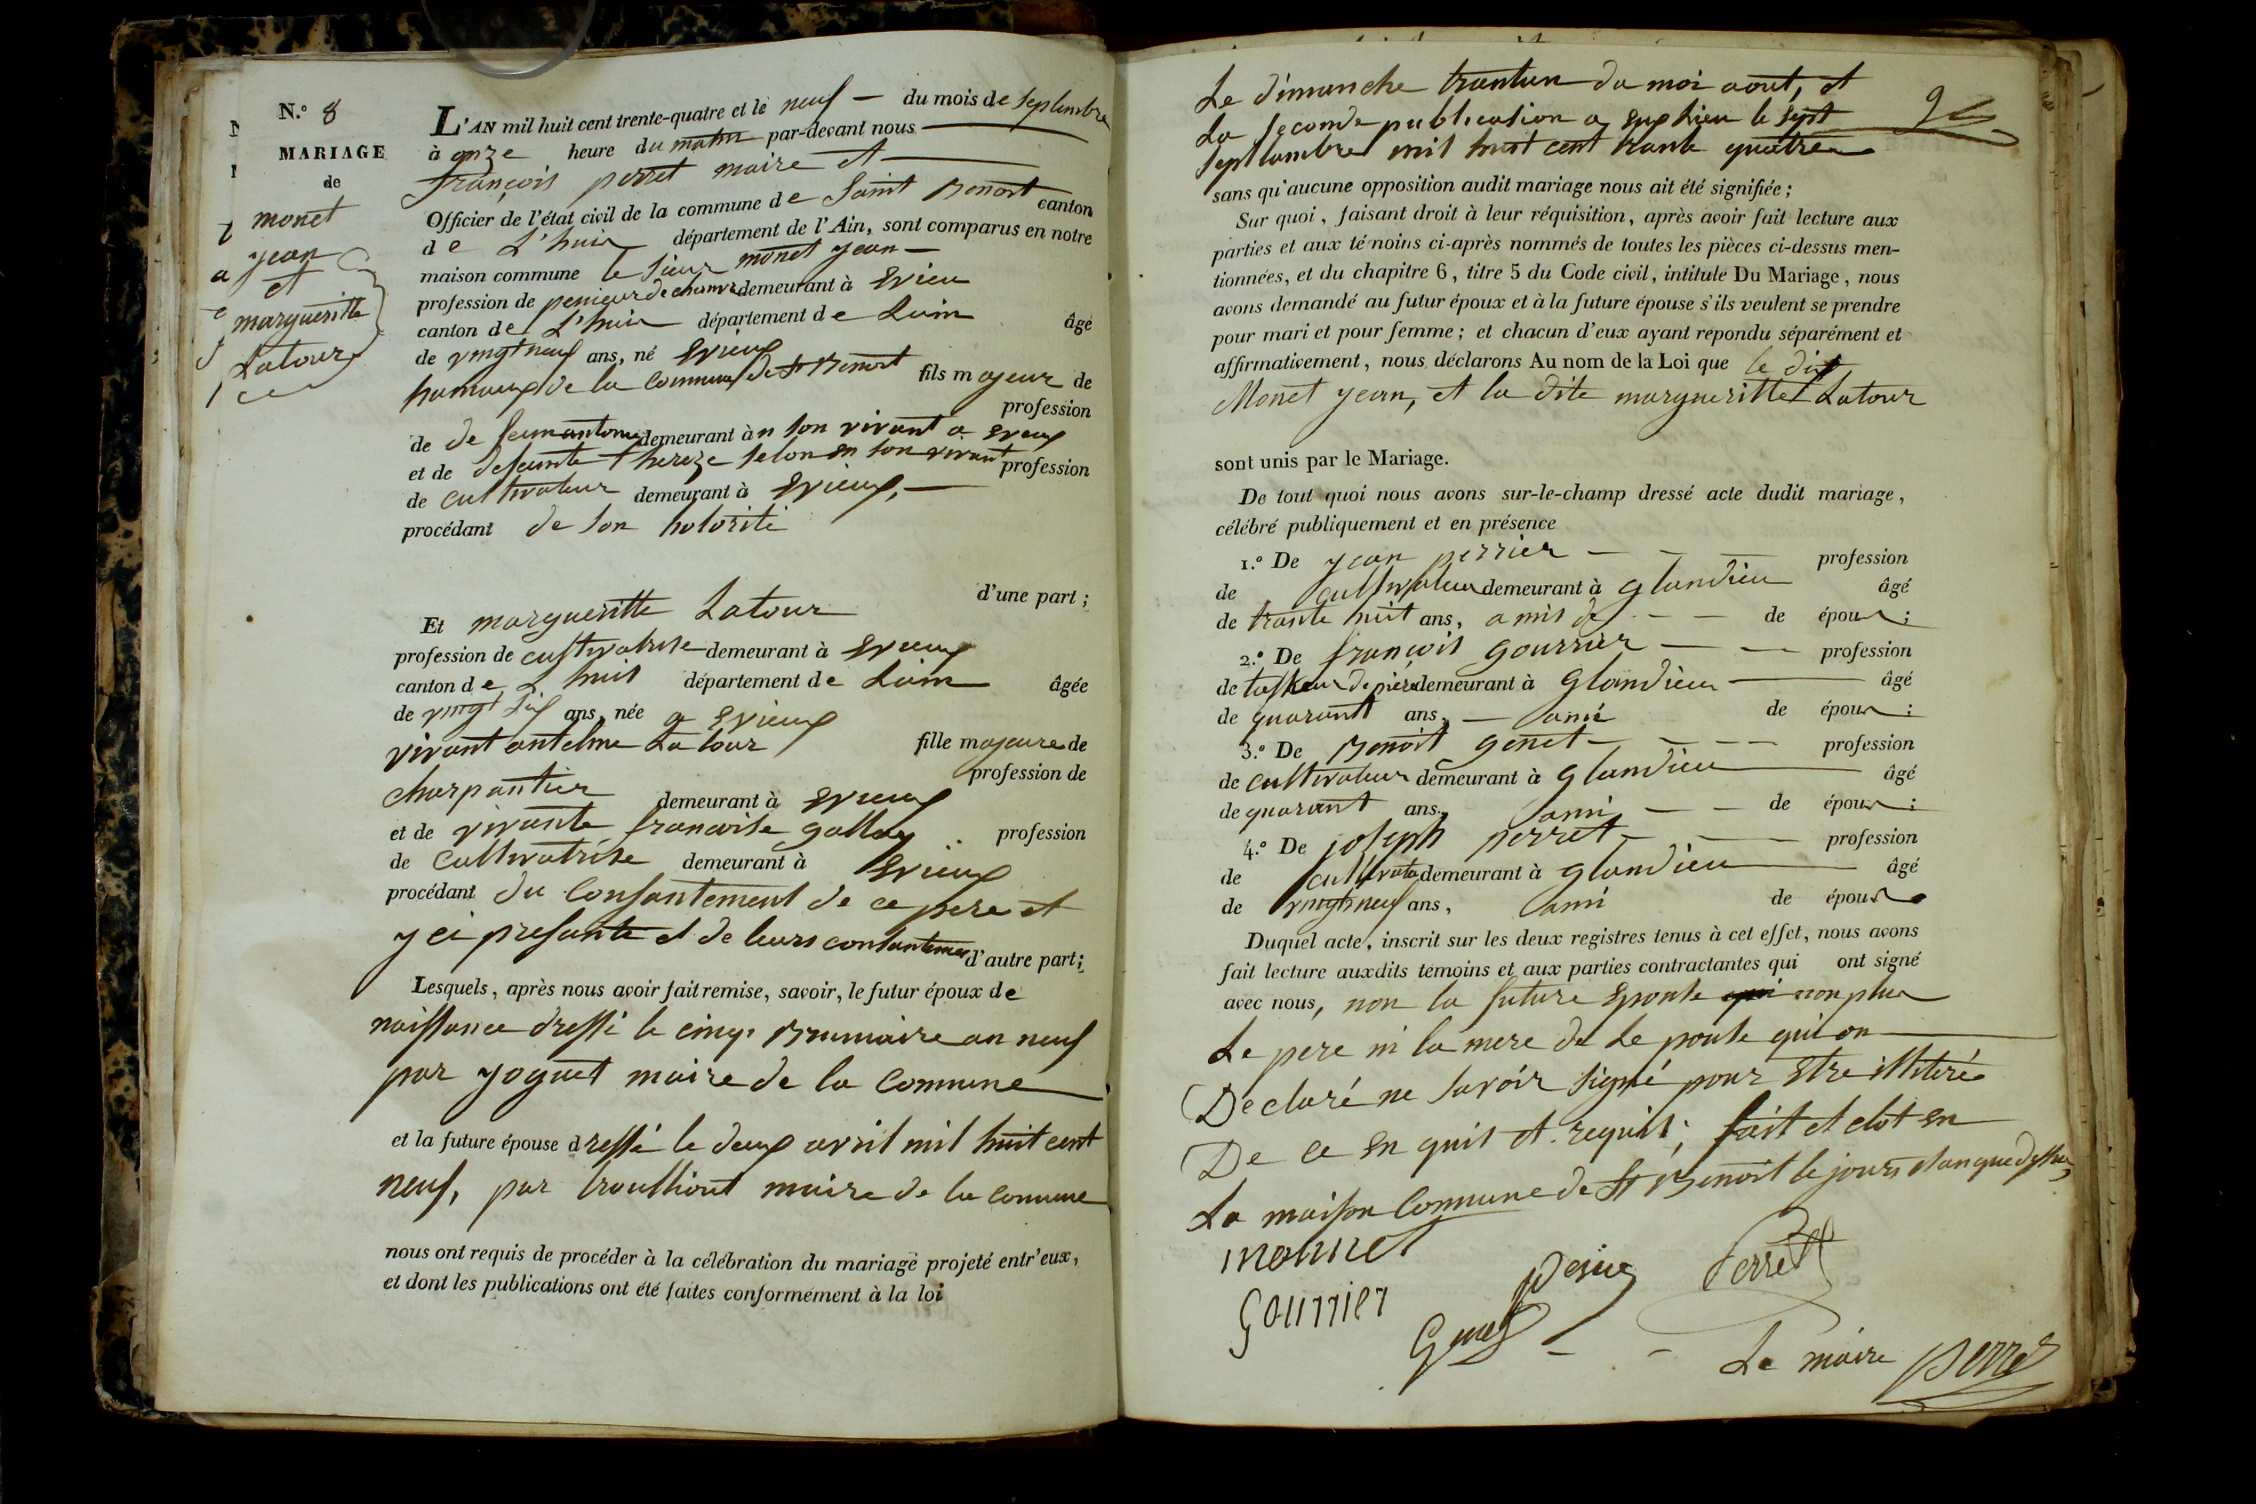 N.° 8
MARIAGE
de
monet
jean
et
margueritte
Latour
L'AN mil huit cent trente-quatre et le neuf — du mois de septembre
à onze heure du matin par-devant nous
françois perret maire et
Officier de l'état civil de la commune de saint Benoit canton
de L'huis département de l'Ain, sont comparus en notre
maison commune le sieur monet jean —
profession de penieur de chanvre demeurant à Evieu
canton de L'huis département de Lain âgé
de vingt neuf ans, né Evieux
hamaux de la commune de St Benoit fils majeur de
profession
de de feu antoine demeurant àn son vivant a Evieux
et de defeunte thereze selon en son vivant profession
de cultivateur demeurant à Evieux, —
procédant de son
d'une part ;
Et margueritte Latour
profession de cultivatrise demeurant à Evieux
canton de L huis département de Lain âgée
de vingt six ans, née a Evieux
vivant antelme Latour fille majeure de
profession de
charpantier demeurant à Evieux
et de vivante francoise gallay profession
de cultivatrise demeurant à Evieux
procédant du consantement de ce pere et
y ci presante et de leurs consantemen d'autre part ;
Lesquels, après nous avoir fait remise, savoir, le futur époux de
naissance dressé le cinq. Brumaire an neuf
par joguet maire de la commune
et la future épouse dressé le deux avril mil huit cent
neuf, par trouilliout maire de la comune
nous ont requis de procéder à la célébration du mariage projeté entr'eux,
et dont les publications ont été faites conformément à la loi
Le dimanche trantun du moi aout, et
La seconde publication a eux lieu le sept
septtambre mil huit cent trante quatre
sans qu'aucune opposition audit mariage nous ait été signifiée ;
Sur quoi, faisant droit à leur réquisition, après avoir fait lecture aux
parties et aux témoins ci-après nommés de toutes les pièces ci-dessus men-
tionnées, et du chapitre 6, titre 5 du Code civil, intitulé Du Mariage, nous
avons demandé au futur époux et à la future épouse s'ils veulent se prendre
pour mari et pour femme ; et chacun d'eux ayant repondu séparément et
affirmativement, nous déclarons Au nom de la Loi que le dit
Monet jean, et la dite margueritte Latour
sont unis par le Mariage.
De tout quoi nous avons sur-le-champ dressé acte dudit mariage,
célébré publiquement et en présence
1.° De jean perrier — — — profession
de cultivateur demeurant à glandieu âgé
de trante huit ans, amis de — — de époux ;
2.° De françois gourrier — — profession
de talleur de piere demeurant à glandieu — âgé
de quarant ans, — ami de époux ;
3.° De Benoit genet — — — profession
de cultivateur demeurant à glandieu — âgé
de quarant ans, ami — — de époux ;
4.° De joseph perret — — — profession
de cultivate demeurant à glandieu — âgé
de vingt neuf ans, ami de époux
Duquel acte, inscrit sur les deux registres tenus à cet effet, nous avons
fait lecture auxdits témoins et aux parties contractantes qui ont signé
avec nous, non la future Epouse qui non plus
Le pere ni la mere de Le pouse qui on
Declaré ne savoir signé pour Etre illiteré
De ce en quit et requit ; fait et clot en
La maison commune de St Benoit le jours et an que dessus,
monnet
Gourrier
Perret
Le maire perret